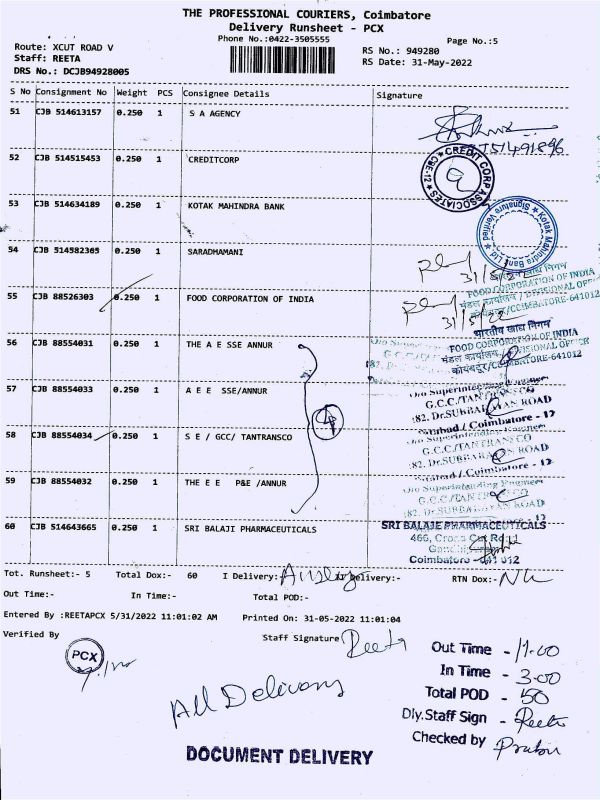 THE PROFESSIONAL COURIERS, Coimbatore
Delivery Runsheet - PCX
Phone No.:0422-3505555
Page No.:5
Route: XCUT ROAD V
RS No.: 949280
Staff: REETA
RS Date: 31-May-2022
DRS No.: DCJB94928005
S No Consignment No Weight PCS Consignee Details Signature
51 CJB 514613157 0.250 1 S A AGENCY
52 CJB 514515453 0.250 1 CREDITCORP
CREDIT CORP ASSOCIATES
CBE-12
53 CJB 514634189 0.250 1 KOTAK MAHINDRA BANK
Kotak Mahindra Bank Ltd
Signature Verified
54 CJB 514582365 0.250 1 SARADHAMANI
31/5/22
55 CJB 88526303 0.250 1 FOOD CORPORATION OF INDIA
31/5/22
FOOD CORPORATION OF INDIA
मंडल कार्यालय / DIVISIONAL OFFICE
कोयंबटूर/COIMBATORE-641012
56 CJB 88554031 0.250 1 THE A E SSE ANNUR
भारतीय खाद्य निगम
FOOD CORPORATION OF INDIA
मंडल कार्यालय / DIVISIONAL OFFICE
कोयंबटूर/COIMBATORE-641012
57 CJB 88554033 0.250 1 A E E SSE/ANNUR
O/o Superintending Engineer
G.C.C/TANTRANSCO
:82, Dr.SUBBARAYAN ROAD
Tatabad / Coimbatore - 12
58 CJB 88554034 0.250 1 S E / GCC/ TANTRANSCO
G.C.C/TANTRANSCO
:82, Dr.SUBBARAYAN ROAD
Tatabad / Coimbatore - 12
59 CJB 88554032 0.250 1 THE E E P&E /ANNUR
O/o Superintending Engineer
G.C.C/TANTRANSCO
:82, Dr.SUBBARAYAN ROAD
4
60 CJB 514643665 0.250 1 SRI BALAJI PHARMACEUTICALS
SRI BALAJE PHARMACEUTICALS
466, Cross Cut Road
Coimbatore - 641 012
Tot. Runsheet:- 5 Total Dox:- 60 I Delivery: Delivery:- RTN Dox:- Nil
Out Time:- In Time:- Total POD:-
Entered By :REETAPCX 5/31/2022 11:01:02 AM Printed On: 31-05-2022 11:01:04
Verified By
Staff Signature Reeta
PCX
All Delivery
Out Time - 11.00
In Time - 3.00
Total POD - 50
Dly.Staff Sign - Reeta
Checked by Prabu
DOCUMENT DELIVERY